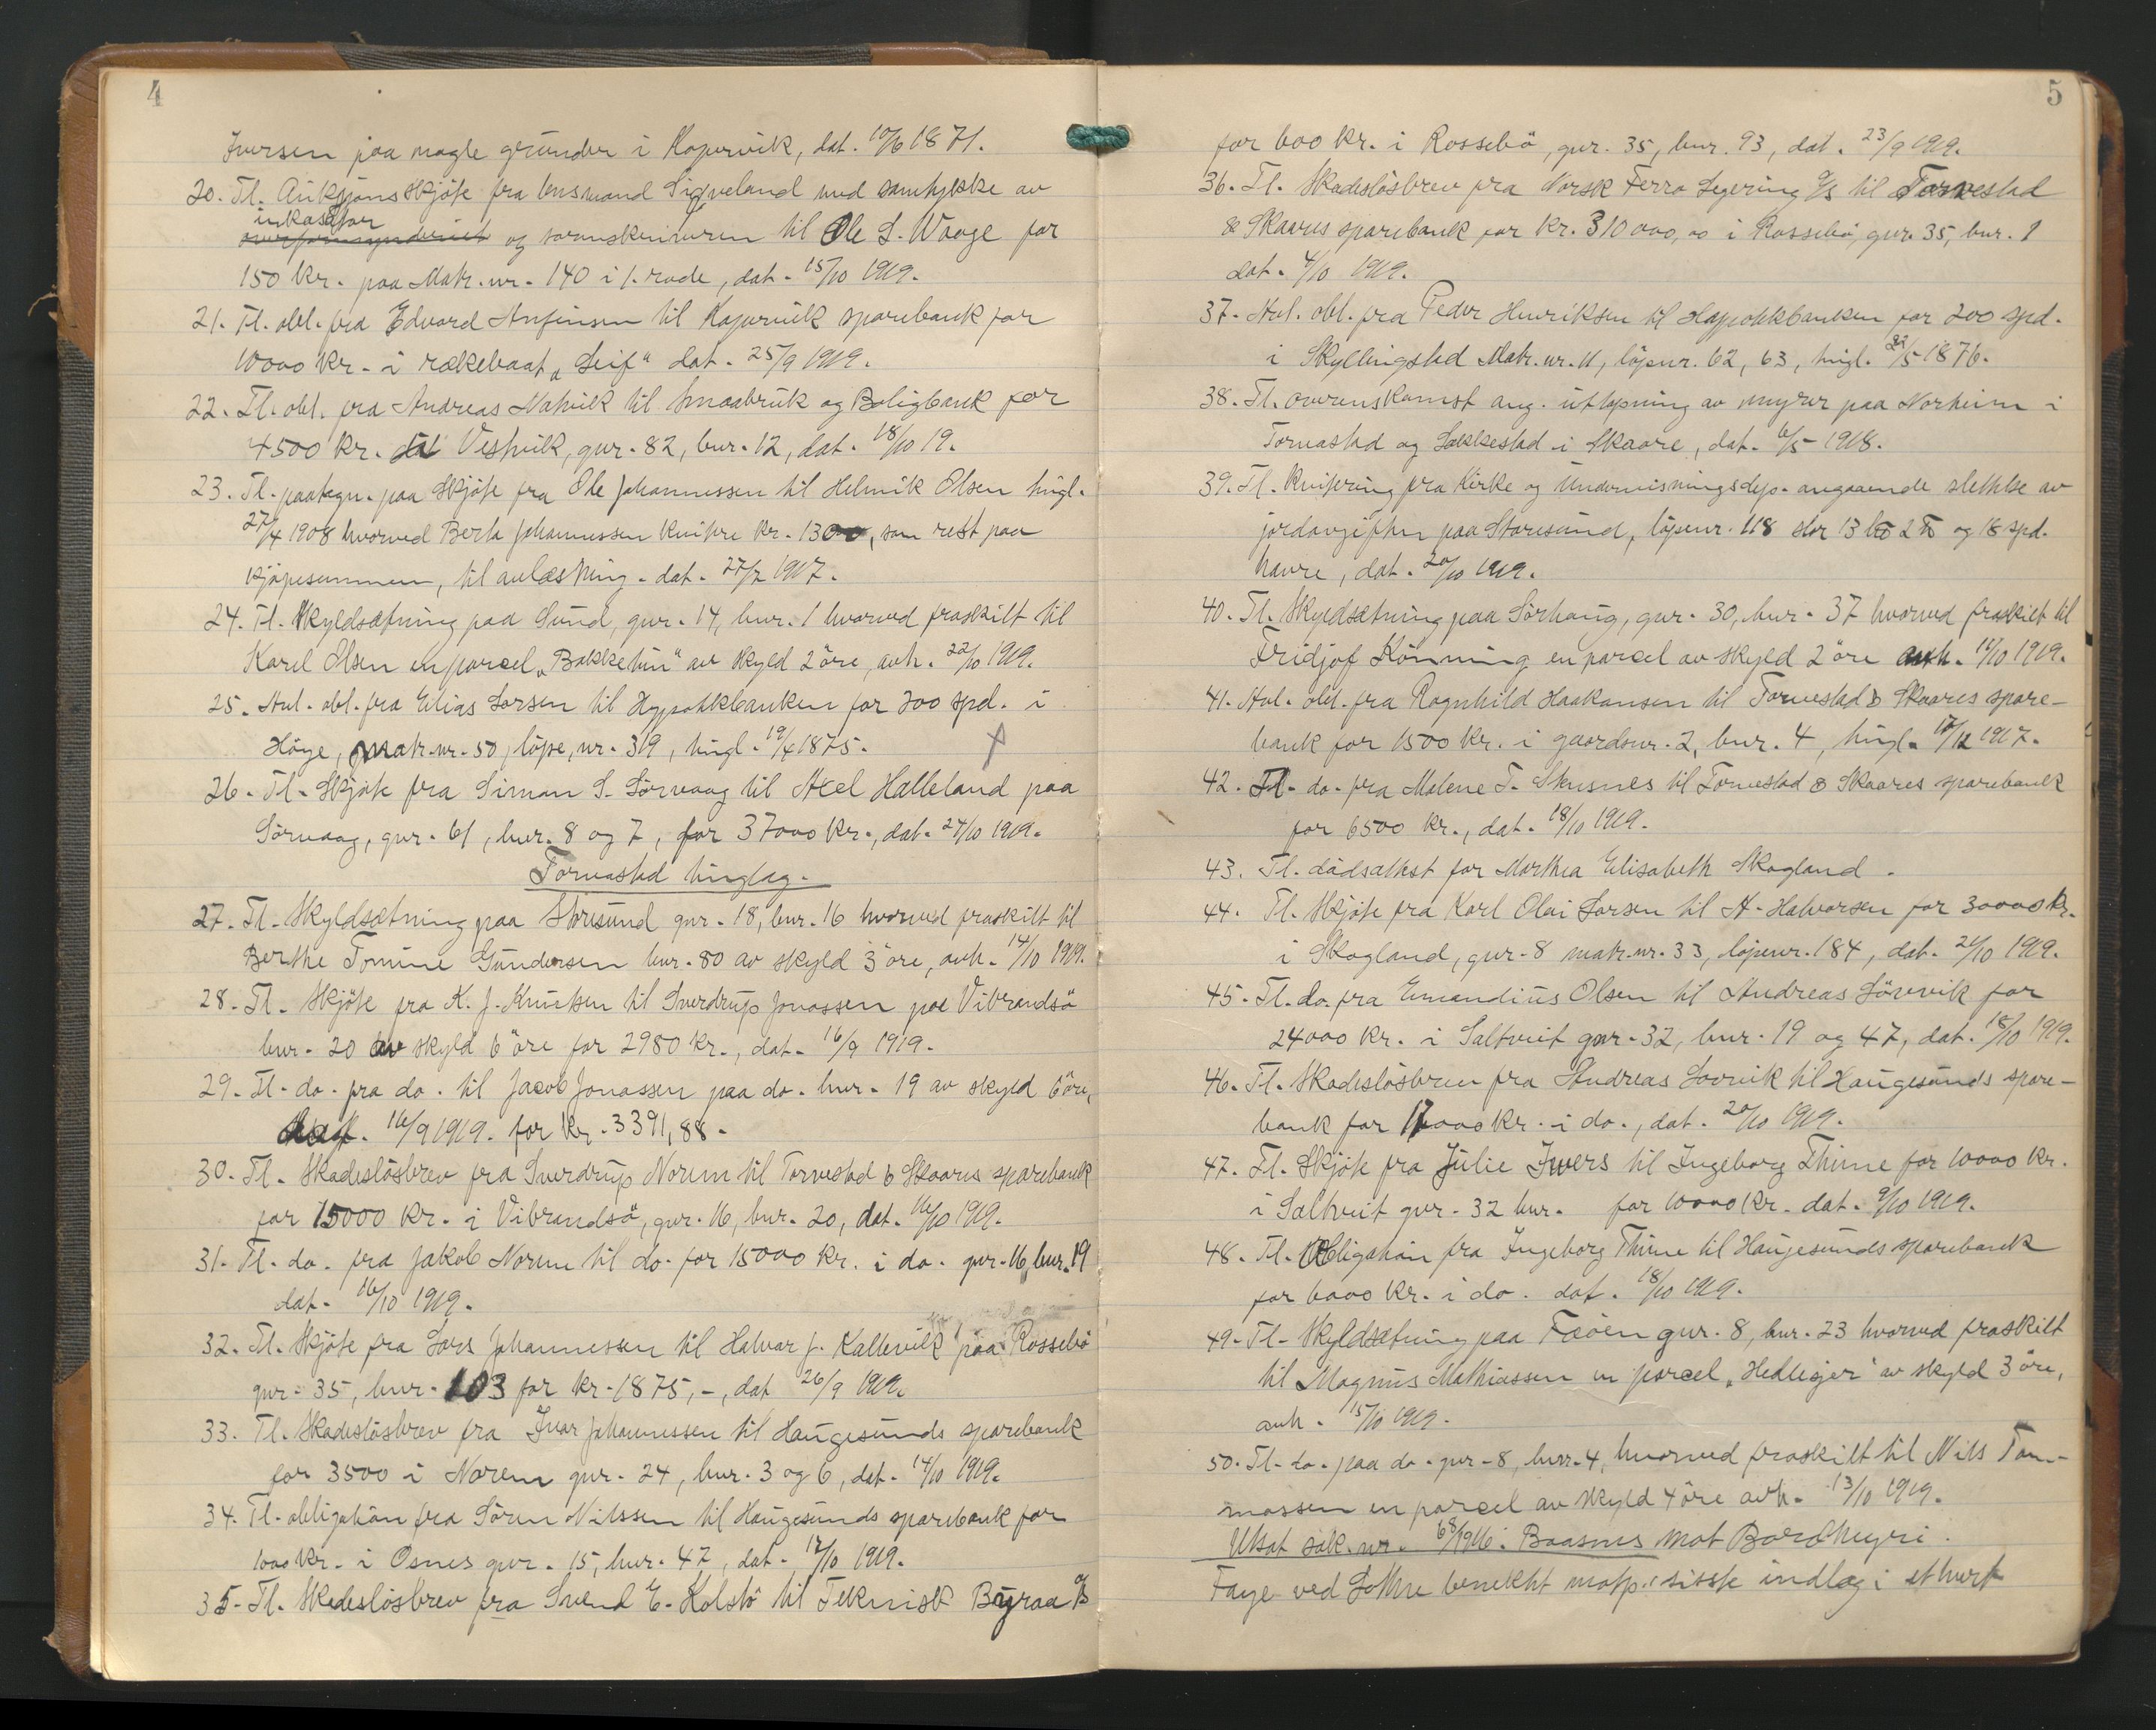 4
Iversen paa nogle grunder i Kopervik, dat. 10/6 1871.
20. Tl. Auksjonsskjöte fra lensmand Sigveland med samtykke av
inkassator
overformynderiet og sorenskriveren til Ole L. Waage for
150 kr. paa Matr. nr. 140 i 1. rode, dat. 15/10 1919.
21. Tl. obl. fra Edvard Anfinsen til Kopervik sparebank for
10000 kr. i rækebaat „Leif“ dat. 25/9 1919.
22. Tl. obl. fra Andreas Natvik til Smaabruk og Boligbank for
4500 kr. Vestvik, gnr. 82, bnr. 12, dat. 18/10 19.
23. Tl. paategn. paa skjöte fra Ole Johannessen til Helmik Olsen tingl.
27/4 1908 hvorved Berta Johannessen kvitre kr. 1300, som rest paa
kjöpesummen, til avlæsning. dat. 27/7 1917.
24. Tl. Skyldsætning paa Sund, gnr. 14, bnr. 1 hvorved fraskilt til
Karel Olsen en parcel „Bakketun“ av skyld 2 öre, avh. 22/10 1919.
25. Avl. obl. fra Elias Larsen til Hypotekbanken for 200 spd. i
Höge, matr. nr. 50, löpe, nr. 319, tingl. 19/4 1875.
26. Tl. Skjöte fra Simon S. Sörvaag til Axel Halleland paa
Sörvaag, gnr. 61, bnr. 8 og 7, for 37000 kr., dat. 24/10 1919.
Torvastad tinglag.
27. Tl. Skyldsætning paa Storesund gnr. 18, bnr. 16 hvorved fraskilt til
Berthe Tomine Gundersen bnr. 80 av skyld 3 öre, avh. 14/10 1919.
28. Tl. Skjöte fra K. J. Knutsen til Sverdrup Jonassen paa Vibrandsö
bnr. 20 av skyld 6 öre for 2980 kr., dat. 16/9 1919.
29. Tl. do. fra do. til Jacob Jonassen paa do. bnr. 19 av skyld 6 öre,
16/9 1919. for kr. 3391,88.
30. Tl. Skadeslösbrev fra Sverdrup Norum til Torvestad & Skaares sparebank
for 15000 kr. i Vibrandsö, gnr. 16, bnr. 20, dat. 16/10 1919.
31. Tl. do. fra Jakob Norum til do. for 15000 kr. i do. gnr. 16, bnr. 19
dat. 16/10 1919.
32. Tl. Skjöte fra Lars Johannessen til Halvar J. Kallevik paa Rossebö
gnr. 35, bnr. 103 for kr. 1875,-, dat 26/9 1919.
33. Tl. Skadeslösbrev fra Ivar Johannessen til Haugesunds sparebank
for 3500 i Norem gnr. 24, bnr. 3 og 6, dat. 14/10 1919.
34. Tl. obligation fra Sören Nilssen til Haugesunds sparebank for
1000 kr. i Osnes gnr. 15, bnr. 47, dat. 17/10 1919.
35. Tl. Skadeslösbrev fra Svend E. Kolstö til Teknisk Byraa A/S
5
for 600 kr. i Rossebö, gnr. 35, bnr. 93, dat. 23/9 1919.
36. Tl. Skadeslösbrev fra Norsk Ferro Legering A/S til Torvestad
& Skaares sparebank for kr. 310000,00 i Rossebö, gnr. 35, bnr. 1
dat. 4/10 1919.
37. Avl. obl. fra Peder Henriksen til Hypotekbanken for 200 spd.
i Skyllingstad Matr. nr. 11, löpenr. 62, 63, tingl. 22/5 1876.
38. Tl. overenskomst ang. utlapning av myrer paa Norheim i
Torvastad og Lækkestad i Skaare, dat. 6/5 1918.
39. Tl. kvitering fra Kirke og Undervisningsdep. angaaende slettelse av
jordavgiften paa Storesund, löpenr. 118 stor 13 og 18 spd.
havre, dat. 20/10 1919.
40. Tl. Skyldsætning paa Sörhaug, gnr. 30, bnr. 37 hvorved fraskilt til
Fridjof Könning en parcel av skyld 2 öre avh. 16/10 1919.
41. Avl. obl. fra Ragnhild Haakansen til Torvestad & Skaares spare-
bank for 1500 kr. i gaardsnr. 2, bnr. 4, tingl. 17/12 1917.
42. Tl. do. fra Malene T. Stusnes til Torvestad & Skaares sparebank
for 6500 kr., dat. 18/10 1919.
43. Tl. dödsattest for Marthea Elisabeth Skogland.
44. Tl. Skjöte fra Karl Olai Larsen til A. Halvorsen for 30000 kr.
i Skogland, gnr. 8 matr. nr. 33, löpenr. 184, dat. 21/10 1919.
45. Tl. do. fra Emandius Olsen til Andreas Lövvik for
24000 kr. i Saltveit gnr. 32, bnr. 19 og 47, dat. 18/10 1919.
46. Tl. Skadeslösbrev fra Andreas Lovvik til Haugesunds spare-
bank for 17000 kr. i do., dat. 20/10 1919.
47. Tl. Skjöte fra Julie Ivers til Ingeborg Thime for 10000 kr.
i Saltveit gnr. 32 bnr. for 10000 kr. dat. 9/10 1919.
48. Tl. Obligation fra Ingeborg Thime til Haugesunds sparebank
for 6000 kr. i do. dat. 18/10 1919.
49. Tl. Skyldsætning paa Fæöen gnr. 8, bnr. 23 hvorved fraskilt
til Magnus Mathiassen en parcel „Hedlesjer“ av skyld 3 öre,
avh. 15/10 1919.
50. Tl. do. paa do. gnr. 8, bnr. 4, hvorved fraskilt til Nils Tom-
massen en parcel av skyld 4 öre avh. 13/10 1919.
Utsat sak. nr. 68/1916: Baasnes mot Bardhugri.
Faye ved Lothe benektet motp. sisste indlæg i ethvert